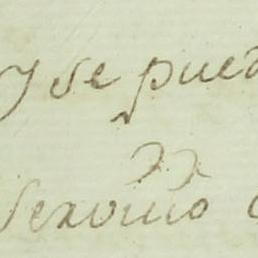 y se pued
servicio